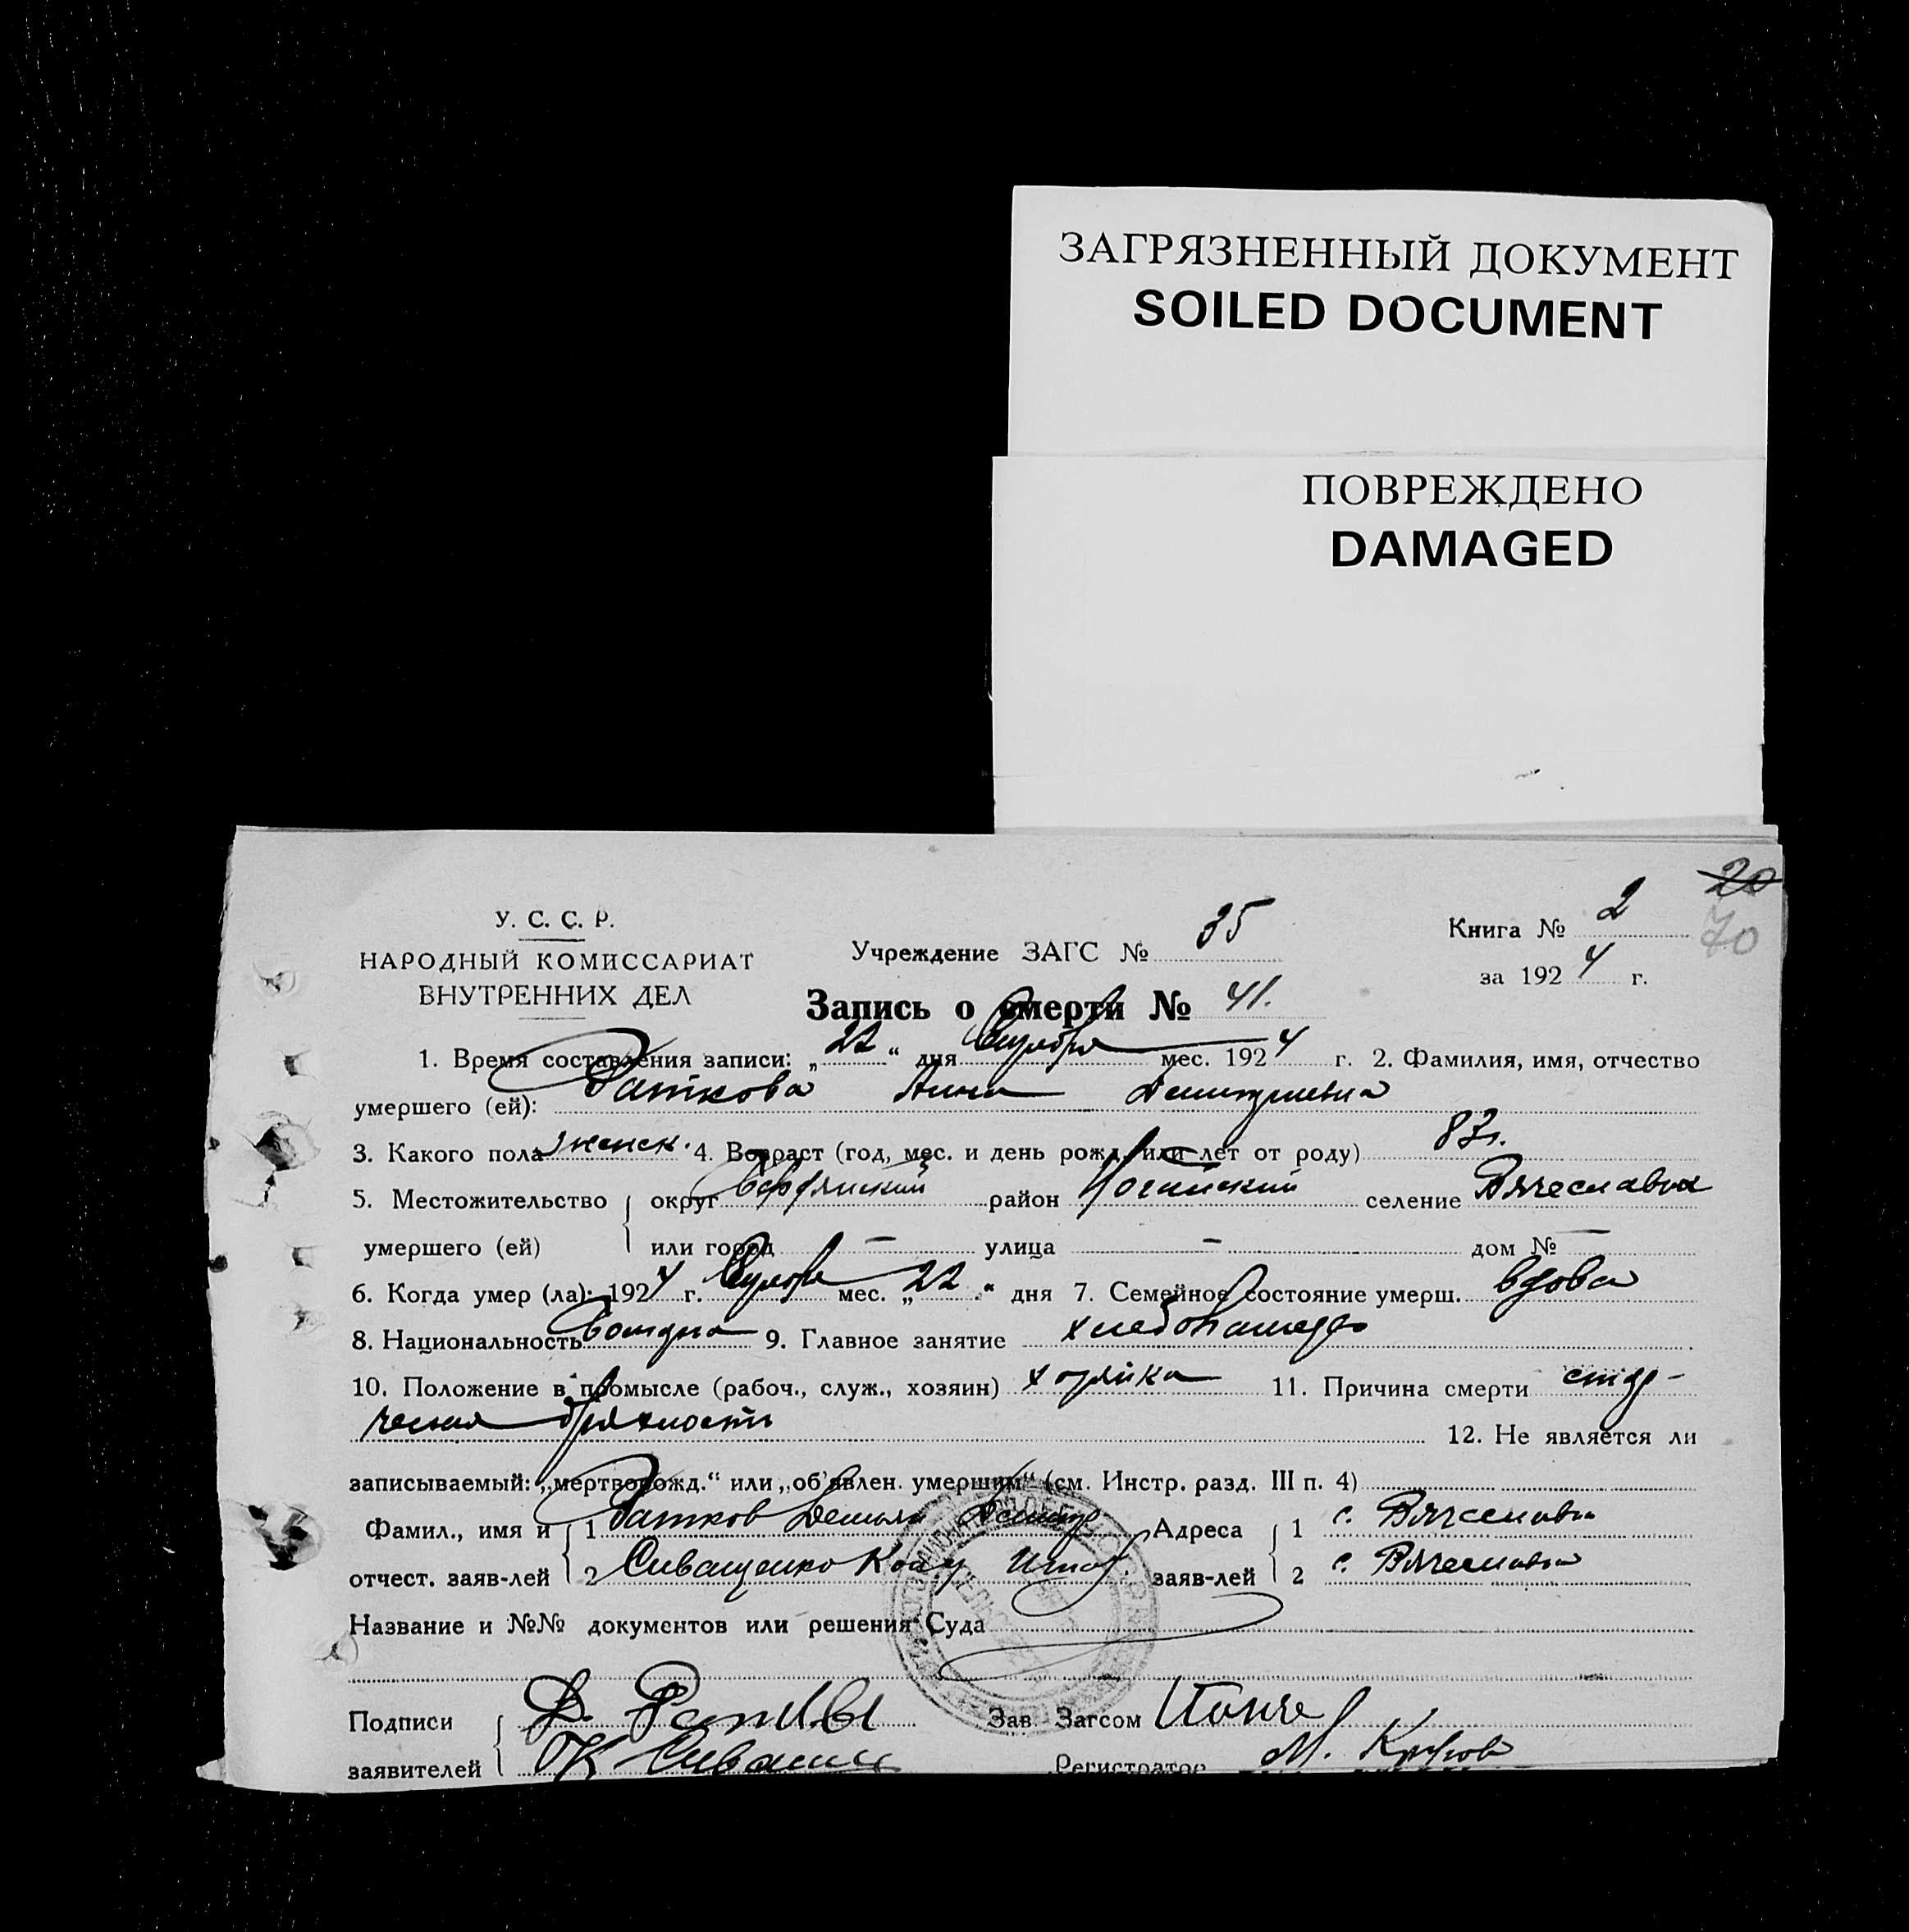 ЗАГРЯЗНЕННЫЙ ДОКУМЕНТ
SOILED DOCUMENT
ПОВРЕЖДЕНО
DAMAGED
20
70
У. С. С. Р.
НАРОДНЫЙ КОМИССАРИАТ
ВНУТРЕННИХ ДЕЛ
Учреждение ЗАГС № 35
Книга № 2
за 1924 г.
Запись о смерти № 41.
1. Время составления записи: „22“ дня мес. 1924 г. 2. Фамилия, имя, отчество
умершего (ей): Раткова Анна
3. Какого пола женск. 4. Возраст (год, мес. и день рожд. или лет от роду)
5. Местожительство округ район Ногайский селение Вячеславка
умершего (ей) или город — улица — дом № —
6. Когда умер (ла): 1924 г. мес. „22“ дня 7. Семейное состояние умерш. вдова
8. Национальность 9. Главное занятие
10. Положение в промысле (рабоч., служ., хозяин) 11. Причина смерти стар-
ческая дряхлость 12. Не является ли
записываемый: „мертворожд.“ или „об'явлен. умершим“ (см. Инстр. разд. III п. 4)
Фамил., имя и 1 Ратков Демьян Адреса 1 с. Вячеславка
отчест. заяв-лей 2 заяв-лей 2 с. Вячеславка
Название и №№ документов или решения Суда
Подписи Д. Зав. Загсом
заявителей К Регистратор М.